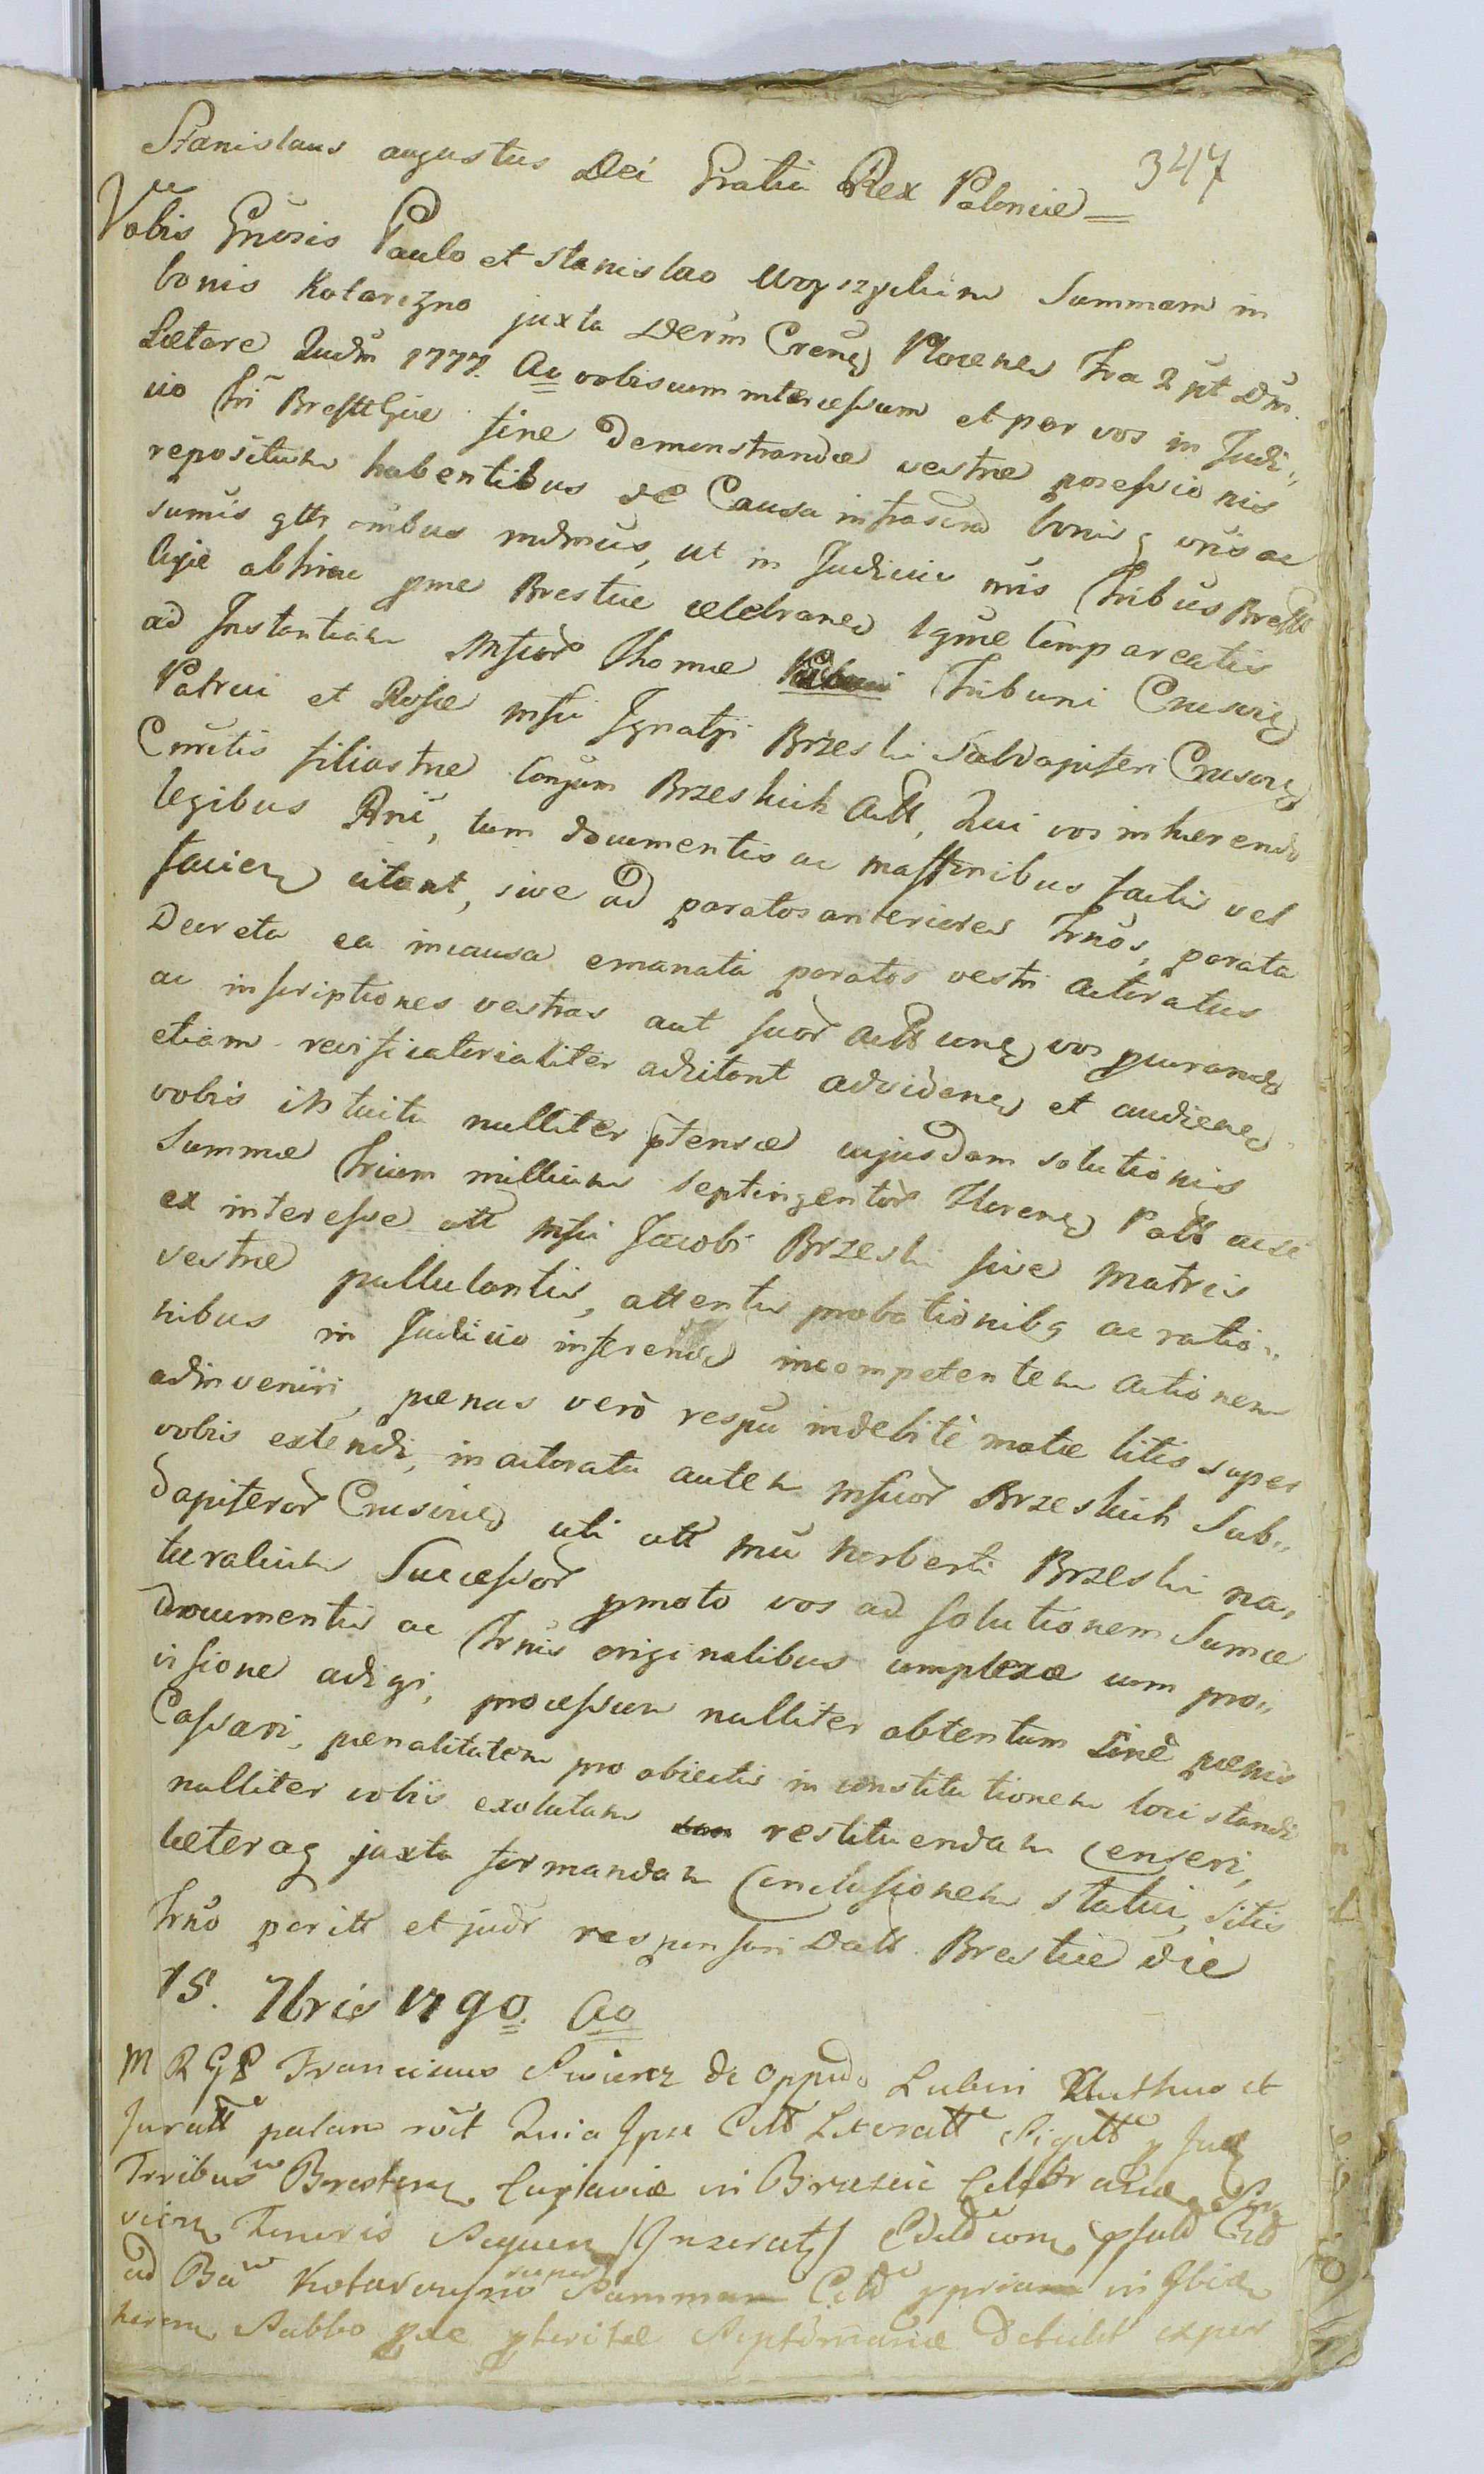 347
Stanislaus augustus Dei Gratia Rex Poloniæ =
Vobis Gnosis Paulo et Stanislao Summam in
bonis Kotarczyno juxta Decrm Plocenes Fra 2 pt Dni.
Lætare Judm 1777. Ao vobiscum intercessum et per vos in Judi„
cio Tri Brestt Gie fine Demonstrandæ vestræ possessionis
repositum habentibus de Causa infrascrip bonisq vris ac
sumis gttr omibus mdmus, ut in Judicio nris Tribus Brestt
Cujæ abhinc pme Brestiæ celebranes Igme Compareatis
ad Instantiam Mfcor Thomæ Tribuni Crusvies
Patrui et Rosæ Mfci Ignatji Brzeski Subdapiferi Crusvies
Cmitis filiastræ Conjum Brzeskich Actt, Qui vos inhærendo
legibus Rni, tum documentis ac mastionibus factis vel
faciens citant, sive ad paratos anteriores Trnos, parata
Decreta ea incausa emanata paratos vestri actoratus
ac inscriptiones vestras aut suor Actt cones vos pcurandos
etiam revificatorialiter adcitant advidenes et audienes
vobis intuitu nulliter ptensæ cujusdam solutionis
Summæ Trium millium septingentor Florenes Poltt acsi
ex interesse ott Mfci Jacobi Brzeski sive Matris
vestræ pullulantis, attentis probationibq ac ratio„
nibus in Judicio inferendis incompetentem actionem
adinveniri, pænas verò respu indebitè motæ litis super
vobis extendi, in actoratu autem Mfcor Brzeskich Sub„
dapiferor Crusvies uti ott Mci Norberti Brzeski na„
turalium Successor pmoto vos ad solutionem Sumæ
Documentis ac Trnis originalibus complexæ cum pro„
visione adigi, processum nulliter obtentum sinè pænis
Cassari, pænalitatem pro obiectis in constitutionem loci standi
nulliter vobis exolutam restituendam censeri,
Cæteraq juxta formandam Conclusionem statui, sitis
Trno paritt et judr responsuri Datt. Brestiæ die
15. 7bris 1790. Ao
M R G P Franciscus de oppido Lubin Authus et
Juratt palam roit Quia Ipse Citt Literatt Sigitt p Jud
Tribus Bresten Cujaviæ in Brzesciu
Tenoris Sequen /Inseratz/
ad Ba Kotarczyno super Summam Citt ppriam in Ibidem
Sabbo pxe pteritæ Septimanæ Detulit exper